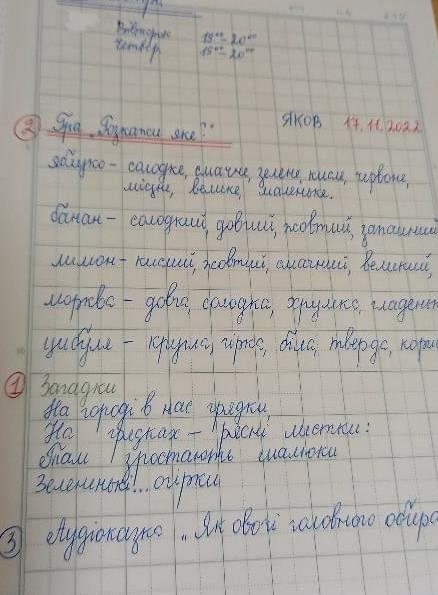 Вівторок 15⁰⁰-20⁰⁰
Четвер 15⁰⁰-20⁰⁰
ЯКОВ 17.11.2022
② Гра „Розкажи яке?"
яблуко – солодке, смачне, зелене, кисле, червоне,
міцне, велике, маленьке.
банан – солодкий, довгий, жовтий, запашний
лимон – кислий, жовтий, смачний, великий,
морква – довга, солодка, хрумка, гладеньк
цибуля – кругла, гірка, біла, тверда, кори
① Загадки
На городі в нас грядки,
На грядках – рясні листки:
Там зростають малюки
Зелененькі... огірки
3 Аудіоказка „Як овочі головного обира